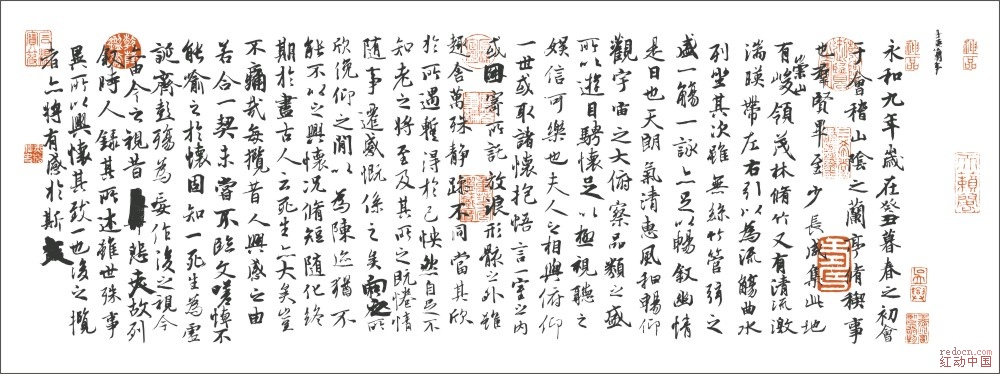 永和九年歲在癸丑暮春之初會
于會稽山陰之蘭亭脩稧事
也羣賢畢至少長咸集此地
有崇山峻領茂林脩竹又有清流激
湍暎帶左右引以為流觴曲水
列坐其次雖無絲竹管弦之
盛一觴一詠亦足以暢敘幽情
是日也天朗氣清惠風和暢仰
觀宇宙之大俯察品類之盛
所以遊目騁懷足以極視聽之
娛信可樂也夫人之相與俯仰
一世或取諸懷抱悟言一室之內
或因寄所託放浪形骸之外雖
趣舍萬殊靜躁不同當其欣
於所遇暫得於己怏然自足不
知老之將至及其所之既惓情
隨事遷感慨係之矣向之所
欣俛仰之閒以為陳迹猶不
能不以之興懷況脩短隨化終
期於盡古人云死生亦大矣豈
不痛哉每攬昔人興感之由
若合一契未嘗不臨文嗟悼不
能喻之於懷固知一死生為虛
誕齊彭殤為妄作後之視今
亦由今之視昔悲夫故列
敘時人錄其所述雖世殊事
異所以興懷其致一也後之攬
者亦將有感於斯文
redocn.com
红动中国